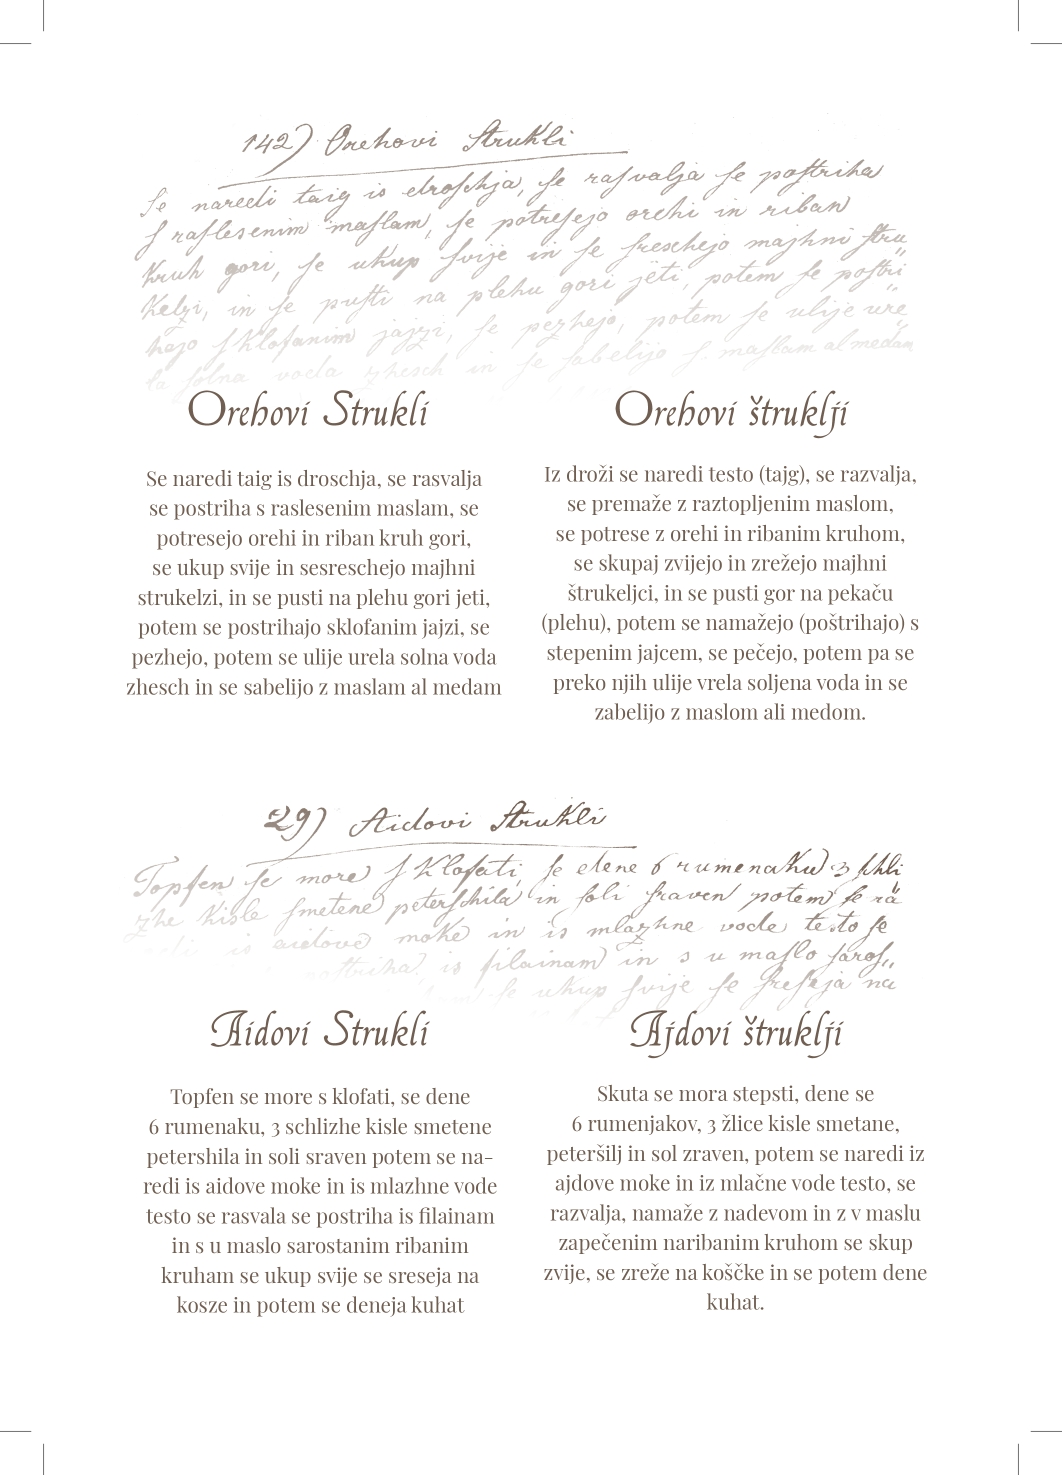 142) Orehovi Strukli
Se naredi taig is droschja, se rasvalja se postriha
s raslesenim maslam, se potresejo orehi in riban
kruh gori, se ukup svije in se sreschejo majhni stru„
kelzi, in se pusti na plehu gori jeti, potem se postri„
hajo sklofanim jajzi, se pezhejo, potem se ulije ure„
la solna voda zhesch in se sabelijo s maslam al medam
Orehovi Strukli
Se naredi taig is droschja, se rasvalja
se postriha s raslesenim maslam, se
potresejo orehi in riban kruh gori,
se ukup svije in sesreschejo majhni
strukelzi, in se pusti na plehu gori jeti,
potem se postrihajo sklofanim jajzi, se
pezhejo, potem se ulije urela solna voda
zhesch in se sabelijo z maslam al medam
Orehovi štruklji
Iz droži se naredi testo (tajg), se razvalja,
se premaže z raztopljenim maslom,
se potrese z orehi in ribanim kruhom,
se skupaj zvijejo in zrežejo majhni
štrukeljci, in se pusti gor na pekaču
(plehu), potem se namažejo (poštrihajo) s
stepenim jajcem, se pečejo, potem pa se
preko njih ulije vrela soljena voda in se
zabelijo z maslom ali medom.
29) Aidovi Strukli
Topfen se more s klofati, se dene 6 rumenaku 3 shli
zhe kisle smetene petershila in soli sraven potem se na
redi is aidove moke in is mlazhne vode testo se
postriha is filainam in s u maslo saros„
se ukup svije se sreseja na
Aidovi Strukli
Topfen se more s klofati, se dene
6 rumenaku, 3 schlizhe kisle smetene
petershila in soli sraven potem se na-
redi is aidove moke in is mlazhne vode
testo se rasvala se postriha is filainam
in s u maslo sarostanim ribanim
kruham se ukup svije se sreseja na
kosze in potem se deneja kuhat
Ajdovi štruklji
Skuta se mora stepsti, dene se
6 rumenjakov, 3 žlice kisle smetane,
peteršilj in sol zraven, potem se naredi iz
ajdove moke in iz mlačne vode testo, se
razvalja, namaže z nadevom in z v maslu
zapečenim naribanim kruhom se skup
zvije, se zreže na koščke in se potem dene
kuhat.